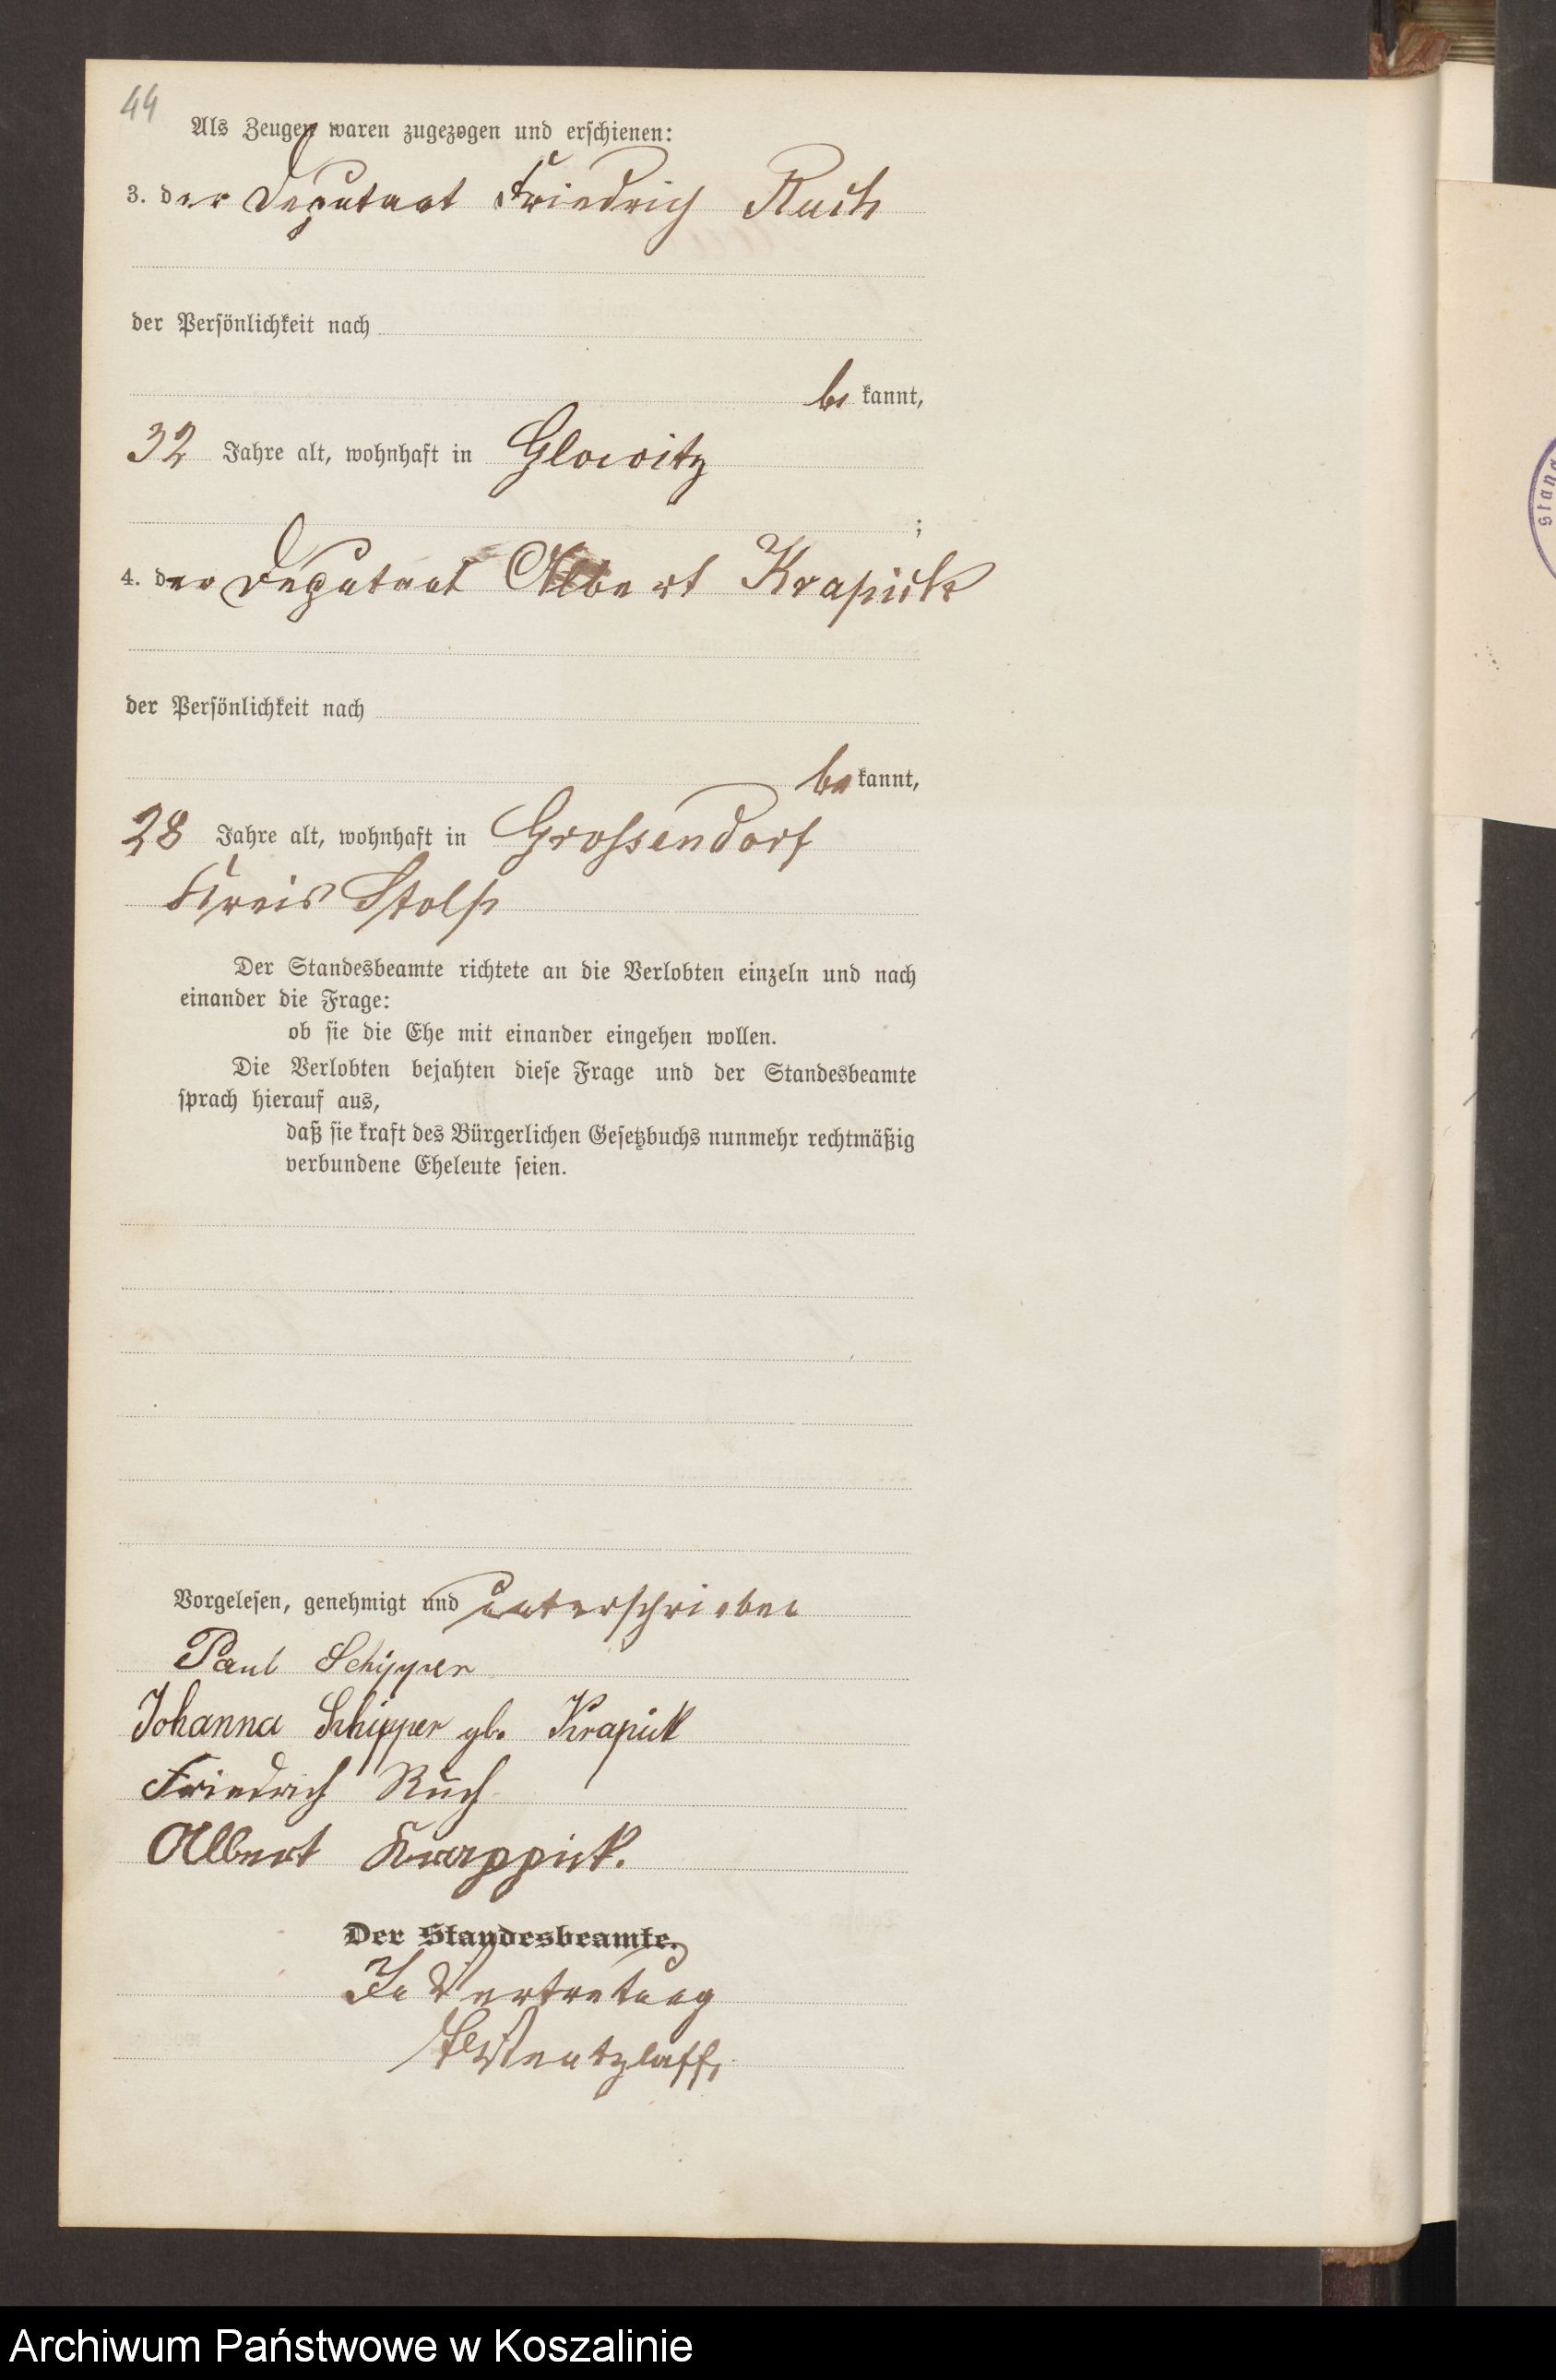 44
Als Zeugen waren zugezogen und erschienen:
3. der Deputant Friedrich Ruch
der Persönlichkeit nach
be kannt,
32 Jahre alt, wohnhaft in Glowitz
;
4. der Deputant Albert Krapick
der Persönlichkeit nach
be kannt,
28 Jahre alt, wohnhaft in Grossendorf
Kreis Stolp
Der Standesbeamte richtete an die Verlobten einzeln und nach
einander die Frage:
ob sie die Ehe mit einander eingehen wollen.
Die Verlobten bejahten diese Frage und der Standesbeamte
sprach hierauf aus,
daß sie kraft des Bürgerlichen Gesetzbuchs nunmehr rechtmäßig
verbundene Eheleute seien.
Vorgelesen, genehmigt und unterschrieben
Paul Schipper
Johanna Schipper gb. Krapick
Friedrich Ruch
Albert Krappick.
Der Standesbeamte.
In Vertretung
Wentzlaff
Archiwum Państwowe w Koszalinie